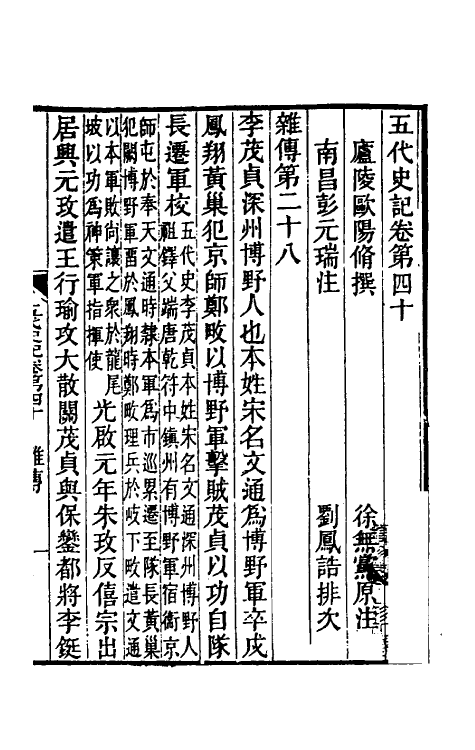 五代史記卷第四十
廬陵歐陽脩撰　徐無黨原注
南昌彭元瑞注　劉鳳誥排次
雜傳第二十八
李茂貞深州博野人也本姓宋名文通爲博野軍卒戍
鳳翔黃巢犯京師鄭畋以博野軍擊賊茂貞以功自隊
長遷軍校
五代史李茂貞本姓宋名文通深州博野人
祖鐸父端唐乾符中鎮州有博野軍宿衛京
師屯於奉天文通時隸本軍爲市巡累遷至隊長黃巢
犯闕博野軍畱於鳳翔時鄭畋理兵於岐下畋遣文通
以本軍敗尚讓之衆於龍尾
坡以功爲神策軍指揮使
光啟元年朱玫反僖宗出
居興元玫遣王行瑜攻大散關茂貞與保鑾都將李鋌
雜傳
一